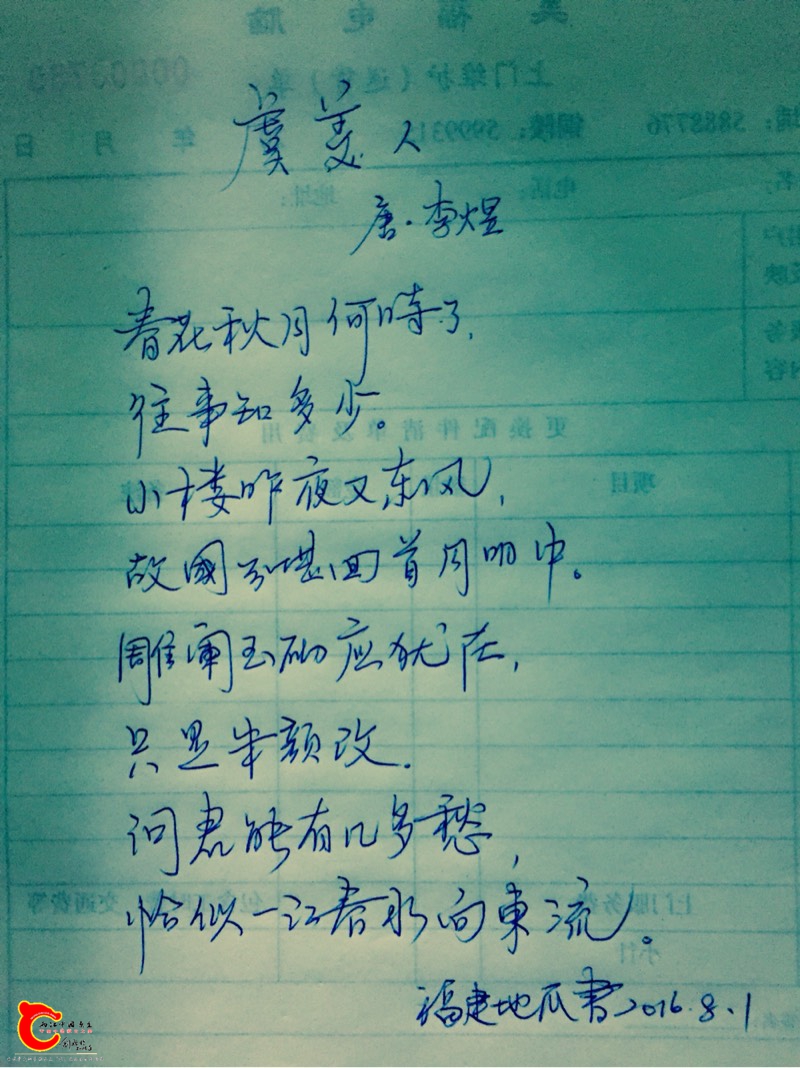 虞美人
唐·李煜
春花秋月何時了，
往事知多少。
小楼昨夜又东风，
故國不堪回首月明中。
雕阑玉砌应犹在，
只是朱颜改．
问君能有几多愁，
恰似一江春水向東流。
福建地瓜書2016.8.1